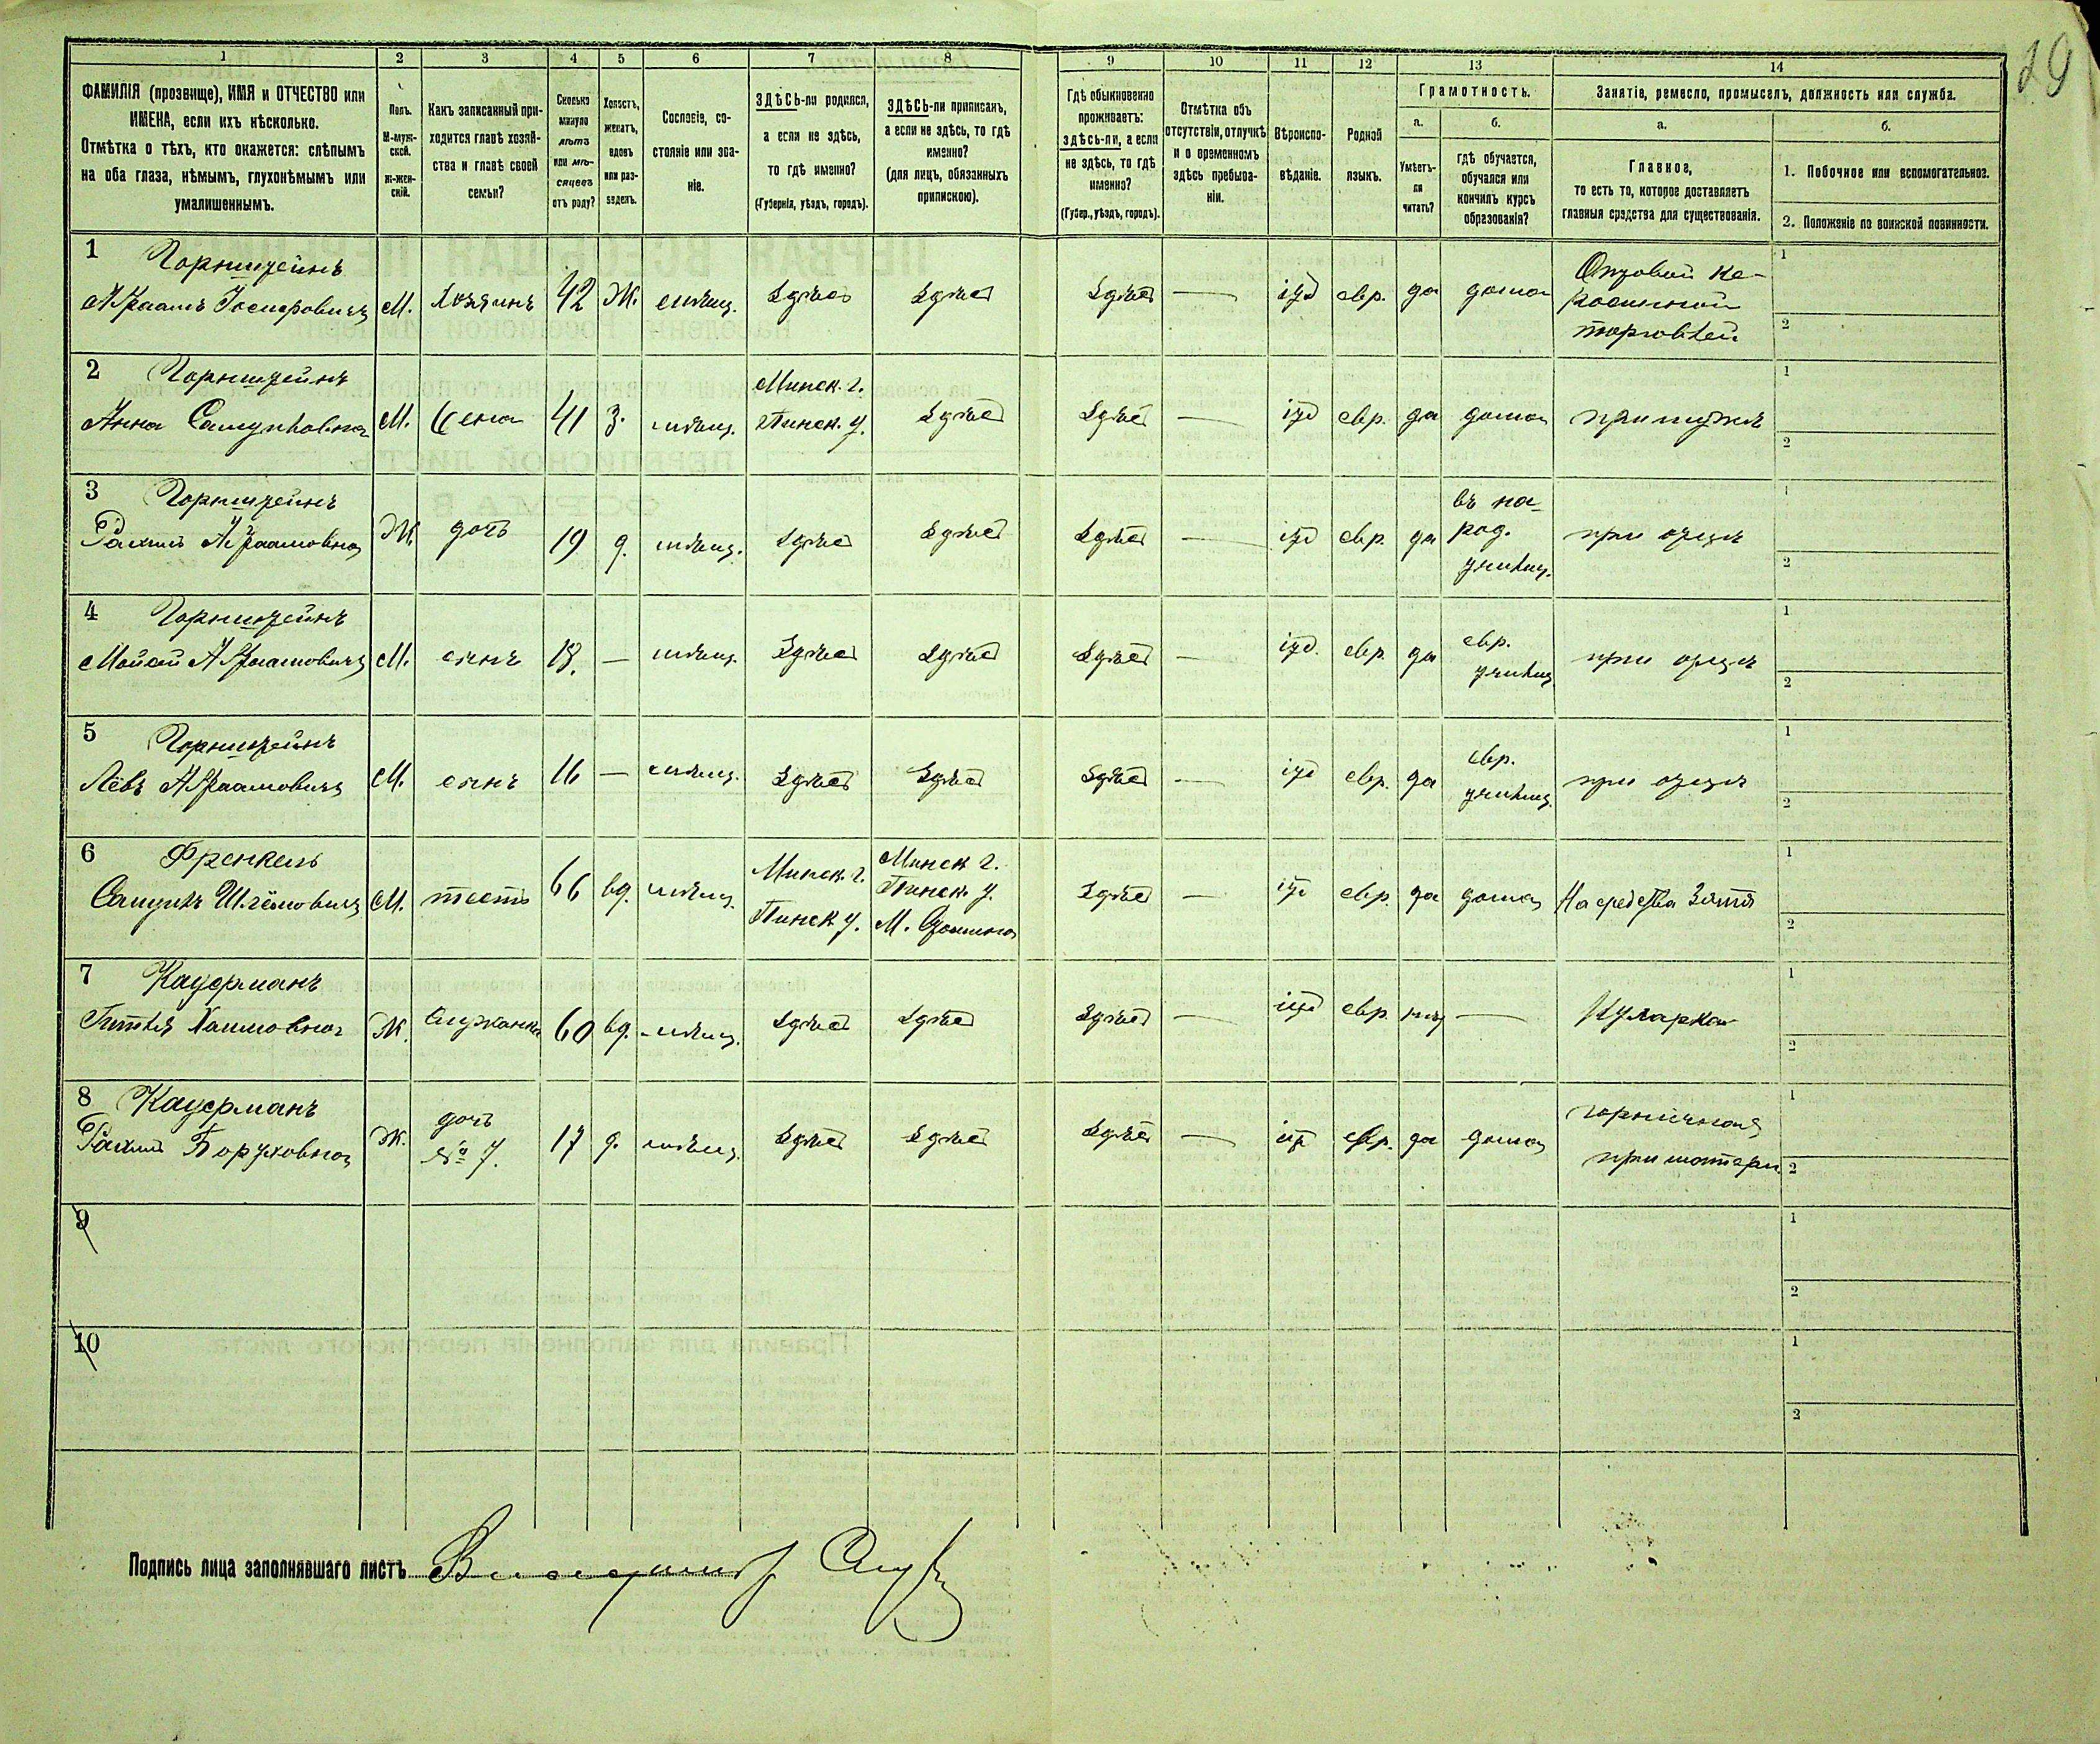 19
1 2 3 4 5 6 7 8 9 10 11 12 13 14
ФАМИЛІЯ (прозвище), ИМЯ и ОТЧЕСТВО или
ИМЕНА, если ихъ нѣсколько.
Отмѣтка о тѣхъ, кто окажется: слѣпымъ
на оба глаза, нѣмымъ, глухонѣмымъ или
умалишеннымъ.
Полъ.
М-муж-
ской.
Ж-жен-
скій.
Какъ записанный при-
ходится главѣ хозяй-
ства и главѣ своей
семьи?
Сколько
минуло
лѣтъ
или мѣ-
сяцевъ
отъ роду?
Холостъ,
женатъ,
вдовъ
или раз-
веденъ.
Сословіе, со-
стояніе или зва-
ніе.
ЗДѢСЬ-ли родился,
а если не здѣсь,
то гдѣ именно?
(Губернія, уѣздъ, городъ).
ЗДѢСЬ-ли приписанъ,
а если не здѣсь, то гдѣ
именно?
(для лицъ, обязанныхъ
припискою).
Гдѣ обыкновенно
проживаетъ:
здѣсь-ли, а если
не здѣсь, то гдѣ
именно?
(Губер., уѣздъ, городъ).
Отмѣтка объ
отсутствіи, отлучкѣ
и о временномъ
здѣсь пребыва-
ніи.
Вѣроиспо-
вѣданіе.
Родной
языкъ.
Грамотность.
а.
Умѣетъ-
ли
читать?
б.
гдѣ обучается,
обучался или
кончилъ курсъ
образованія?
Занятіе, ремесло, промыселъ, должность или служба.
а.
Главное,
то есть то, которое доставляетъ
главныя средства для существованія.
б.
1. Побочное или вспомогательное.
2. Положеніе по воинской повинности.
1 Горнштейнъ
Абраамъ Іосифовичъ М. Хозяинъ 42 Ж. мѣщ. Здѣсь Здѣсь Здѣсь — іуд евр. да дома Оптовой ке-
росинной
торговлей
1
2
2 Горнштейнъ
Анна Самуиловна М. Жена 41 З. мѣщ. Минск. г.
Пинск. у. Здѣсь Здѣсь — іуд евр. да дома при мужѣ
1
2
3 Горнштейнъ
Рахиль Абраамовна Ж. дочь 19 д. мѣщ. Здѣсь Здѣсь Здѣсь — іуд евр. да въ на-
род.
училищ. при отцѣ
1
2
4 Горнштейнъ
Мойсей Абраамовичъ М. сынъ 18. — мѣщ. Здѣсь Здѣсь Здѣсь — іуд. евр. да евр.
училищ при отцѣ
1
2
5 Горнштейнъ
Левъ Абраамовичъ М. сынъ 16 — мѣщ. Здѣсь Здѣсь Здѣсь — іуд евр. да евр.
училищ при отцѣ
1
2
6 Френкель
Самуилъ М. тесть 66 вд. мѣщ. Минск. г.
Пинск у. Минск г.
Пинск. у.
М. Здѣсь — іуд евр. да дома На средства Зятя
1
2
7 Кауфманъ
Гитля Хаимовна Ж. Служанка 60 вд. мѣщ. Здѣсь Здѣсь Здѣсь — іуд евр. нѣт — Кухарка
1
2
8 Кауфманъ
Рахиль Боруховна Ж. дочь
№ 7. 17 д. мѣщ. Здѣсь Здѣсь Здѣсь — іуд евр. да дома горничная
при матери
1
2
9
1
2
10
1
2
Подпись лица заполнявшаго листъ